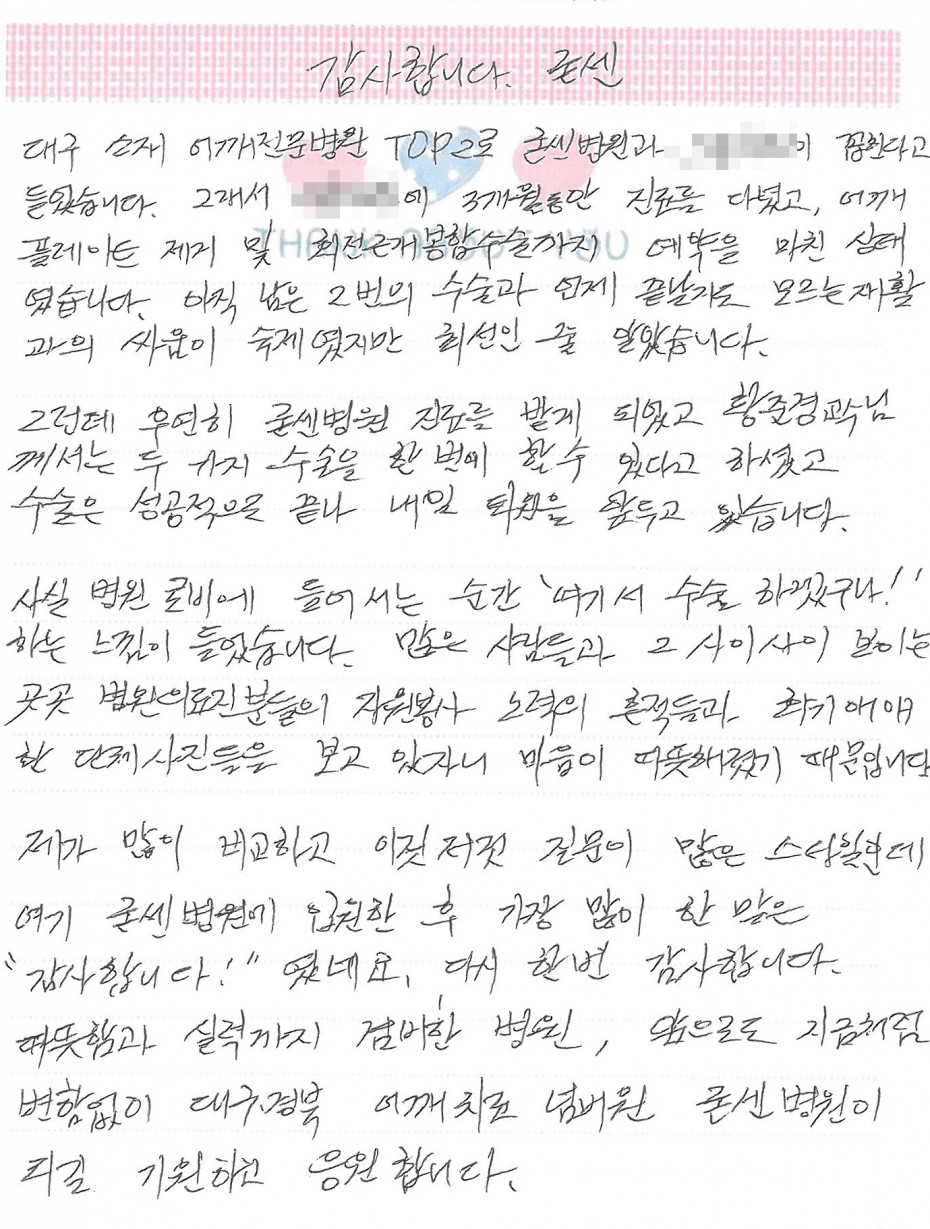 감사합니다. 굳센
대구 소재 어깨전문병원 TOP2로 굳센병원과 이 꼽힌다고
들었습니다. 그래서 에 3개월동안 진료를 다녔고, 어깨
플레이트 제거 및 회전근개봉합수술까지 예약을 마친 상태
였습니다. 아직 남은 2번의 수술과 언제 끝날지도 모르는 재활
과의 싸움이 숙제였지만 최선인 줄 알았습니다.
그런데 우연히 굳센병원 진료를 받게 되었고 황준경교수님
께서는 두 가지 수술을 한 번에 할 수 있다고 하셨고
수술은 성공적으로 끝나 내일 퇴원을 앞두고 있습니다.
사실 병원 로비에 들어서는 순간 '여기서 수술 하겠구나!'
하는 느낌이 들었습니다. 많은 사람들과 그 사이사이 보이는
곳곳 병원의료진분들의 자원봉사 노력의 흔적들과 화기애애
한 단체사진들을 보고 있자니 마음이 따뜻해졌기 때문입니다
제가 많이 비교하고 이것저것 질문이 많은 스타일인데
여기 굳센병원에 입원한 후 가장 많이 한 말은
"감사합니다!" 였네요. 다시 한번 감사합니다.
따뜻함과 실력까지 겸비한 병원, 앞으로도 지금처럼
변함없이 대구·경북 어깨치료 넘버원 굳센병원이
되길 기원하고 응원합니다.
THANK YOU